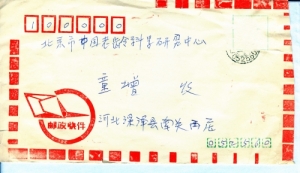 100000
北京市中国老龄科学研究中心
童增 收
邮政快件
河北深泽县南关西店